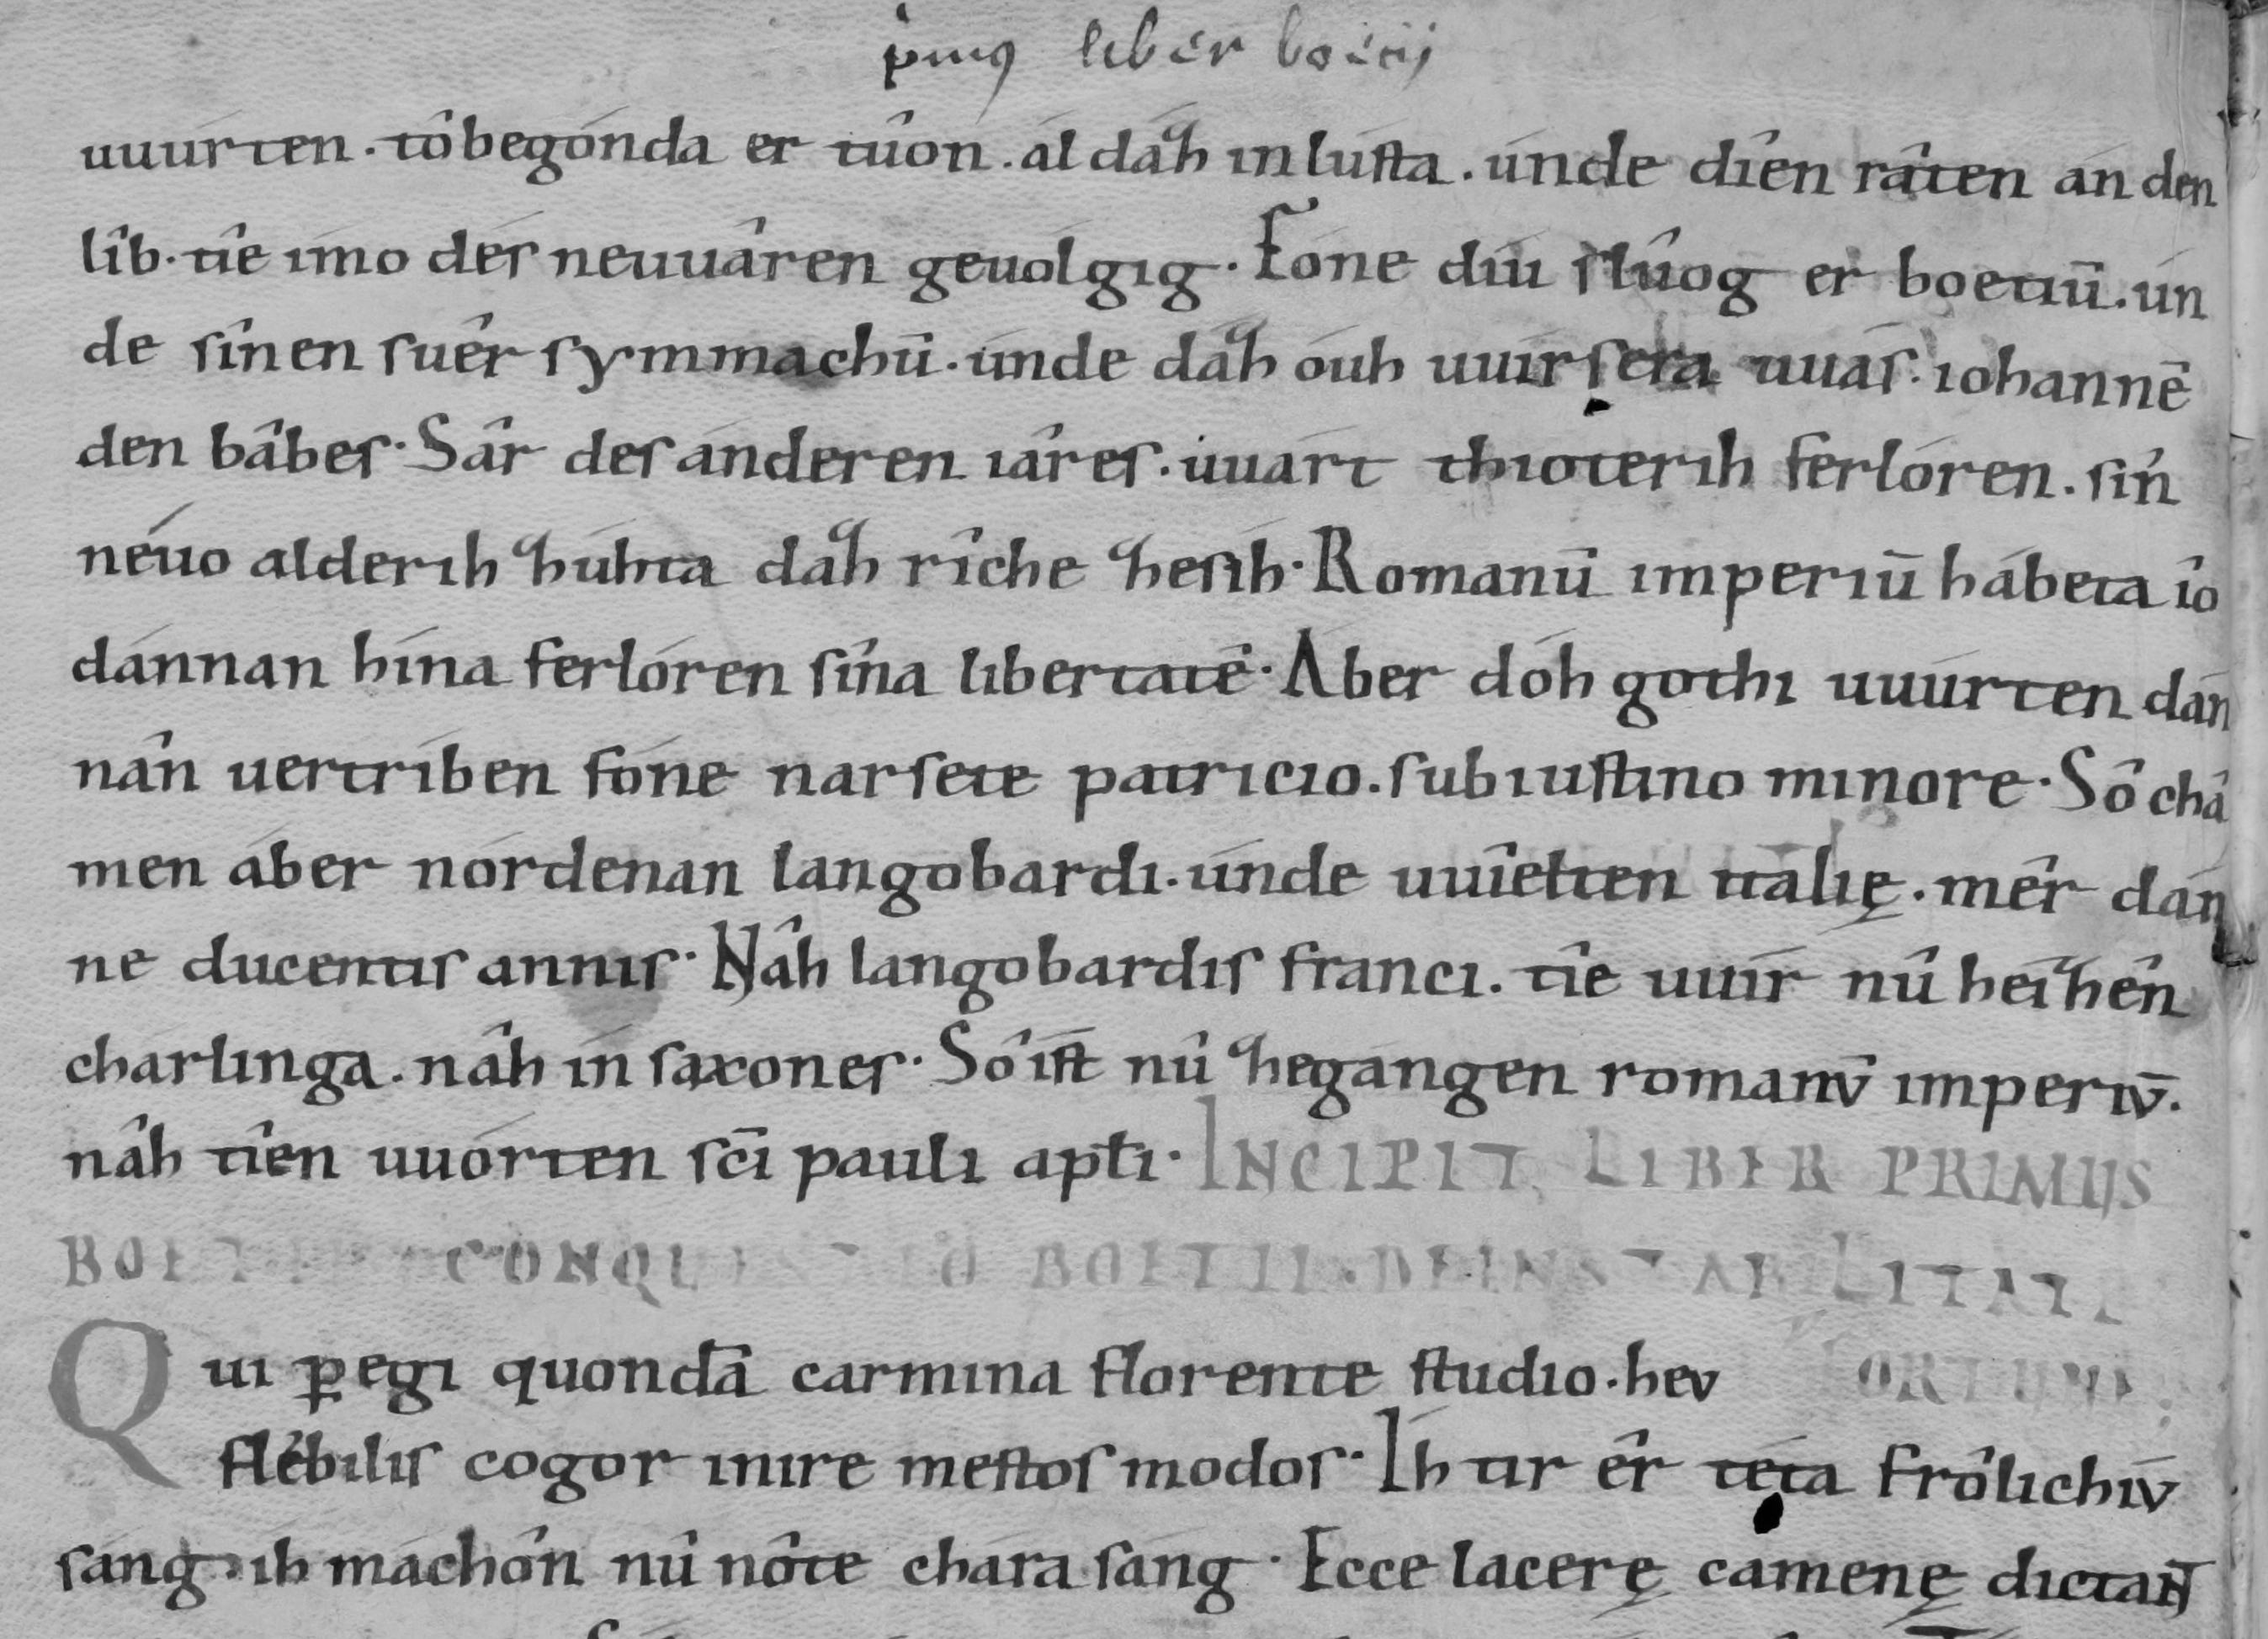 p̍mꝰ liber boecij
uuúrten. tô begónda er tûon. ál dáz in lústa. únde dîen râten án den
lîb. tîe ímo dés ne uuâren geuólgig. Fóne díu slûog er boetiū. ún
de sînen suêr symmachū. únde dáz óuh uuírsera uuás. iohannē
den bâbes. Sâr des ánderen iâres. uuárt thioterih ferlóren. sîn
néuo alderih zúhta dáz rîche ze síh. Romanū imperiū hábeta îo
dánnan hína ferlóren sína libertatē. Aber dóh gothi uuúrten dán
nân uertríben fóne narsete patricio. sub iustino minore. Sô châ
men áber nórdenan langobardi. únde uuîelten italię. mêr dán
ne ducentis annis. Nâh langobardis franci. tîe uuír nû héizên
charlinga. nâh ín saxones. Sô íst nû zegángen romanv̄ imperiv̄.
nâh tîen uuórten sc̄i pauli aptłi. INCIPIT LIBER PRIMUS
BOETII CONQUESTIO BOETII. DE INSTABILITATE
Qui ꝑegi quondā carmina florente studio. hev FORTUNE.
flébilis cogor inire mestos modos. Ih tir êr téta frôlichív
sáng. ih máchôn nû nôte chára sáng. Ecce lacerę camenę dictant